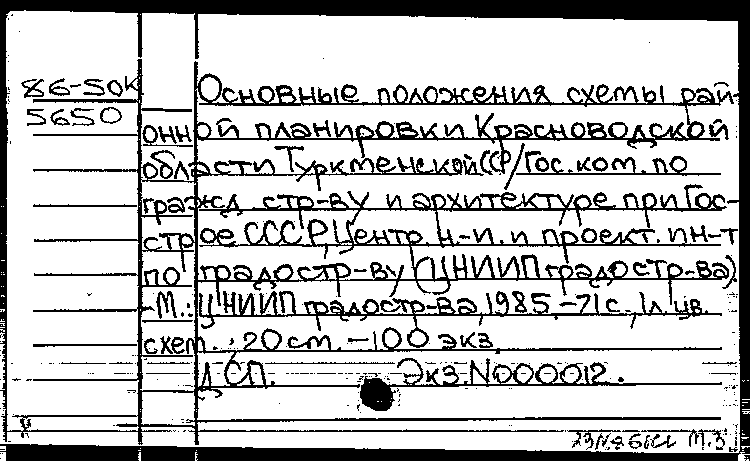 86-50к
5650
Основные положения схемы рай-
онной планировки Красноводской
области Туркменской ССР/Гос.ком. по
гражд. стр-ву и архитектуре при Гос-
строе СССР, Центр. н.-и. и проект. ин-т
по градостр-ву (ЦНИИП градостр-ва).
-М.: ЦНИИП градостр-ва, 1985.-71с., 1л. цв.
схем.; 20см. -100 экз.
ДСП. Экз.N000012.
М.З.